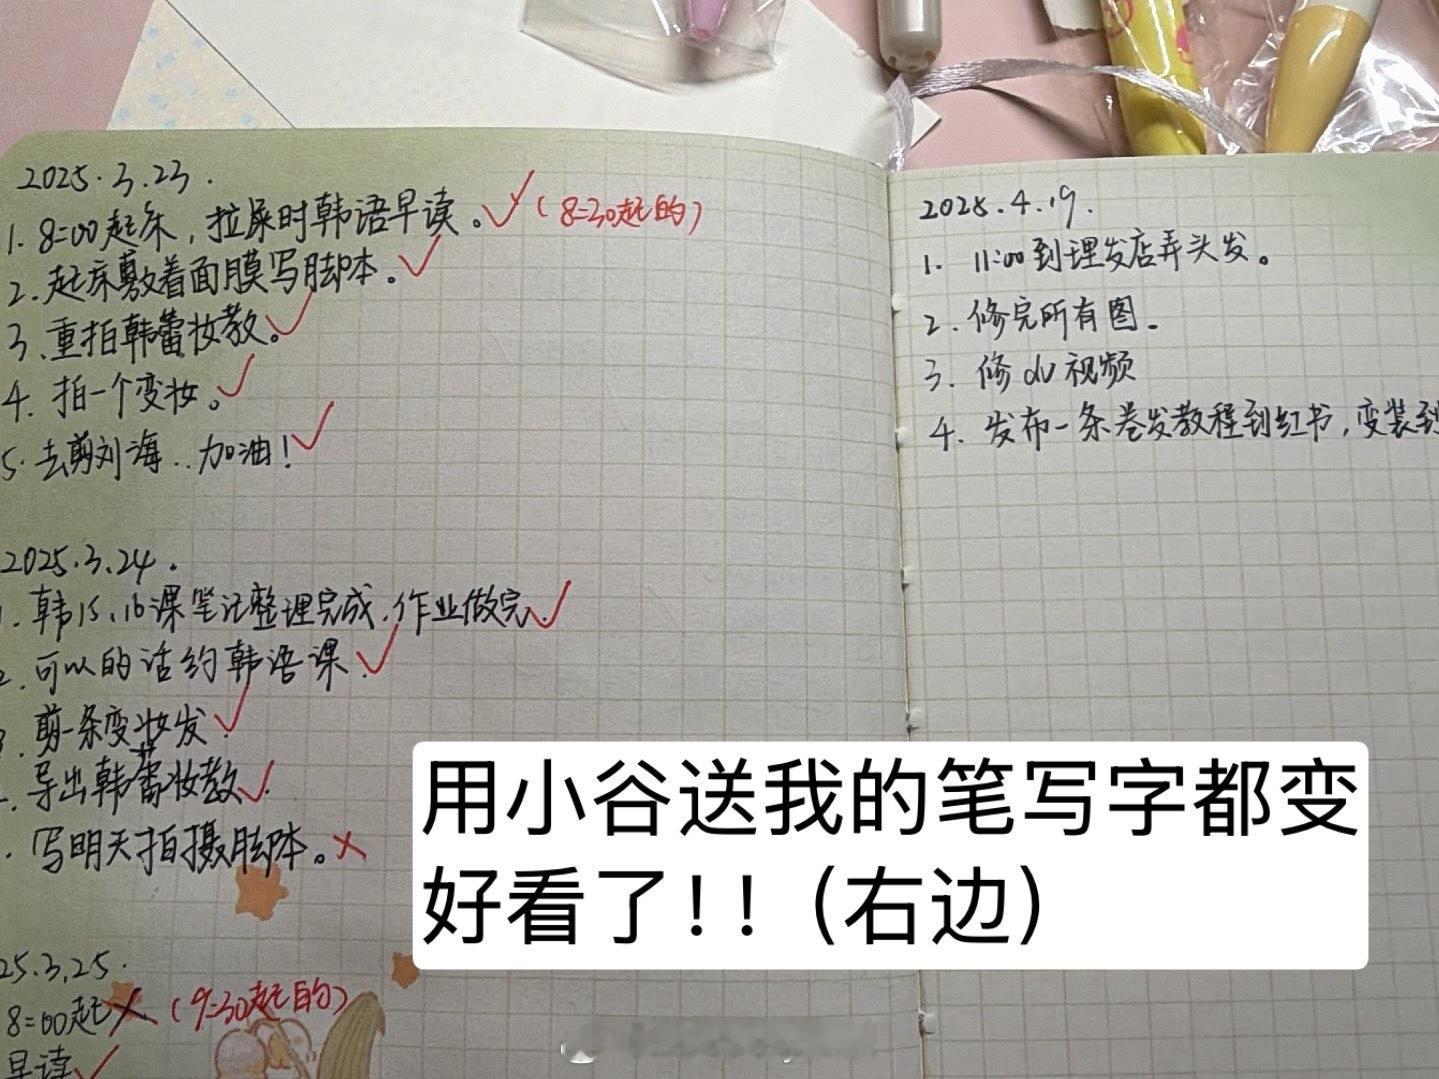 2025.3.23.
1. 8:00起床，拉屎时韩语早读。✓（8:30起的）
2. 起床敷着面膜写脚本。✓
3. 重拍韩蕾妆教。✓
4. 拍一个变妆。✓
5. 去剪刘海..加油！✓
2025.3.24.
1. 韩15、16课笔记整理完成，作业做完✓
2. 可以的话约韩语课✓
3. 剪一条变妆发✓
导出韩蕾妆教✓
写明天拍摄脚本。✗
25.3.25.
8:00起✗（9:30起的）
早读✓
2025.4.19.
1. 11:00到理发店弄头发。
2. 修完所有图。
3. 修dv视频
4. 发布一条卷发教程到红书，变装到
用小谷送我的笔写字都变
好看了!!（右边）